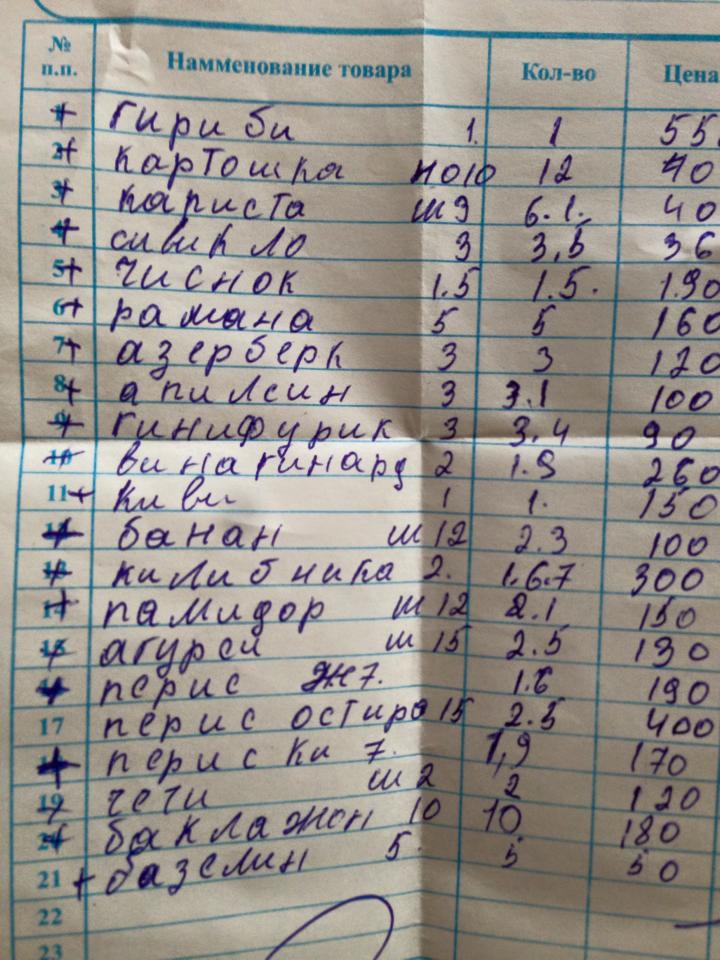 № п.п. Намменование товара Кол-во Цена
1 + гириби 1. 1 55
2 + картошка но10 12 40
3 + каписта ш9 6.1. 40
4 + сивикло 3 3,5 36
5 + чиснок 1.5 1.5. 190
6 + рамана 5 5 160
7 + азерберк 3 3 120
8 + апилсин 3 3.1 100
9 + гинифурик 3 3.4 90
10 + винагинард 2 1.9 260
11 + киви 1 1. 150
12 + банан ш12 2.3 100
13 + килибника 2. 1.6.7 300
14 + памидор ш12 2.1 150
15 + агурси ш15 2.5 130
16 + перис ж7. 1.6 190
17 перис остиро 15 2.5 400
18 + периски 7. 1,9 170
19 + чети ш2 2 120
20 + баклажон 10 10 180
21 + базелин 5. 5 50
22
23